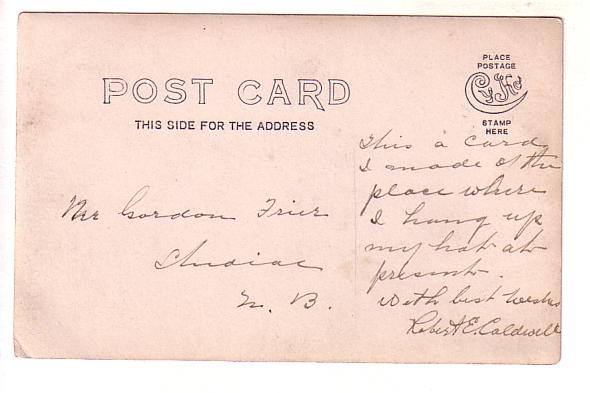 POST CARD
THIS SIDE FOR THE ADDRESS
PLACE
POSTAGE
CyKo
STAMP
HERE
This a card
I made of the
place where
I hang up
my hat at
present.
With best wishes
Robert E. Caldwell
Mr Gordon Frier
N. B.